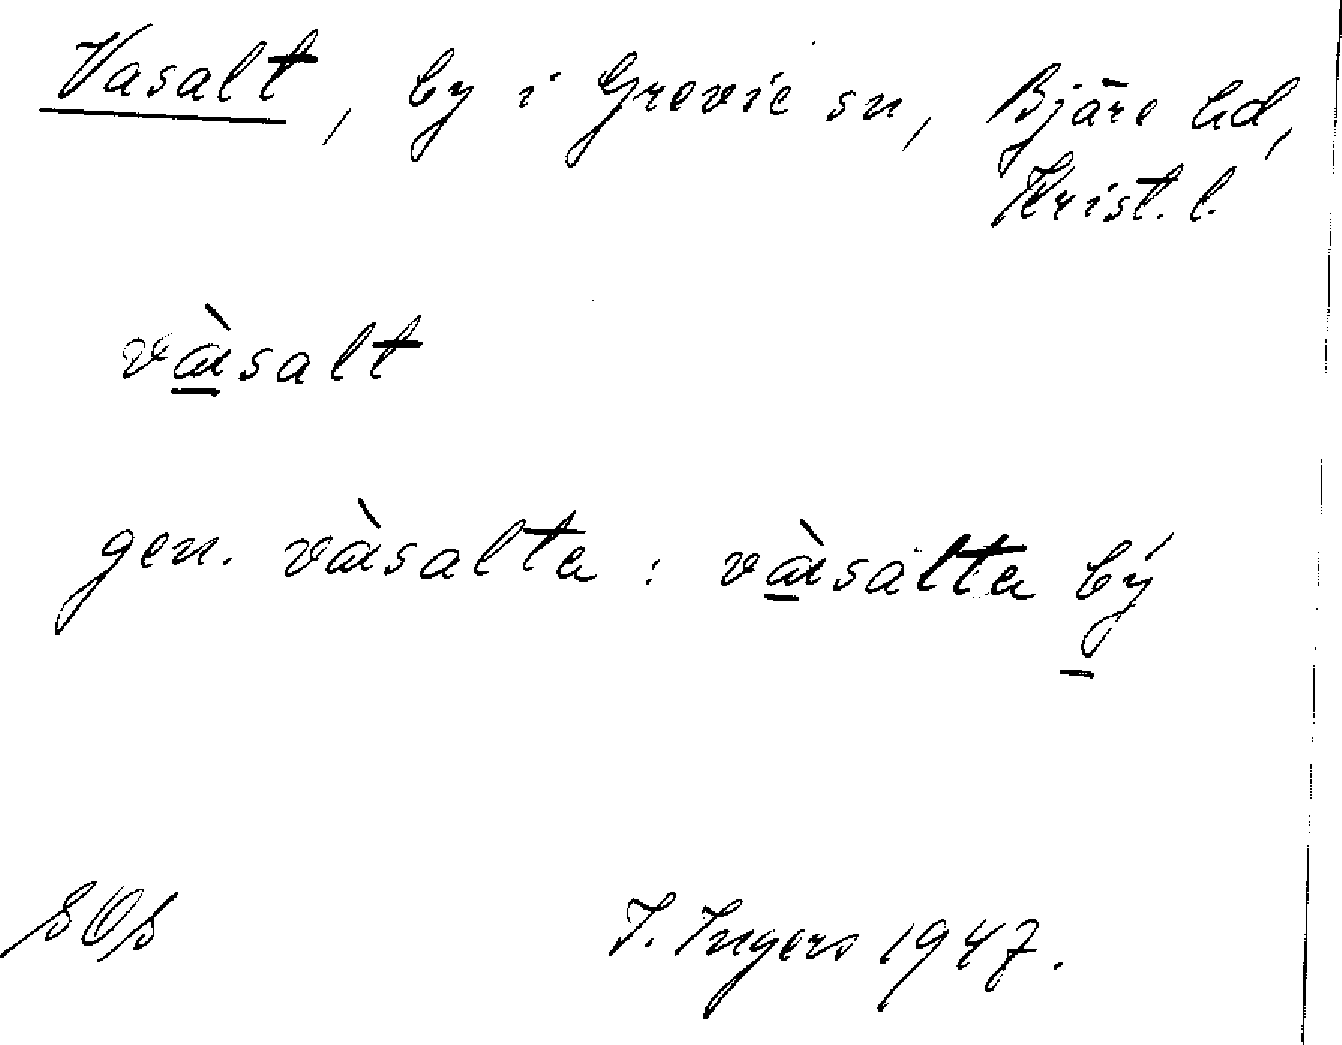 Vasalt, by i Grevie sn, Bjäre hd,
Krist. l.
vàsalt
gen. vàsalta : vàsalta bý
I. Ingers 1947.